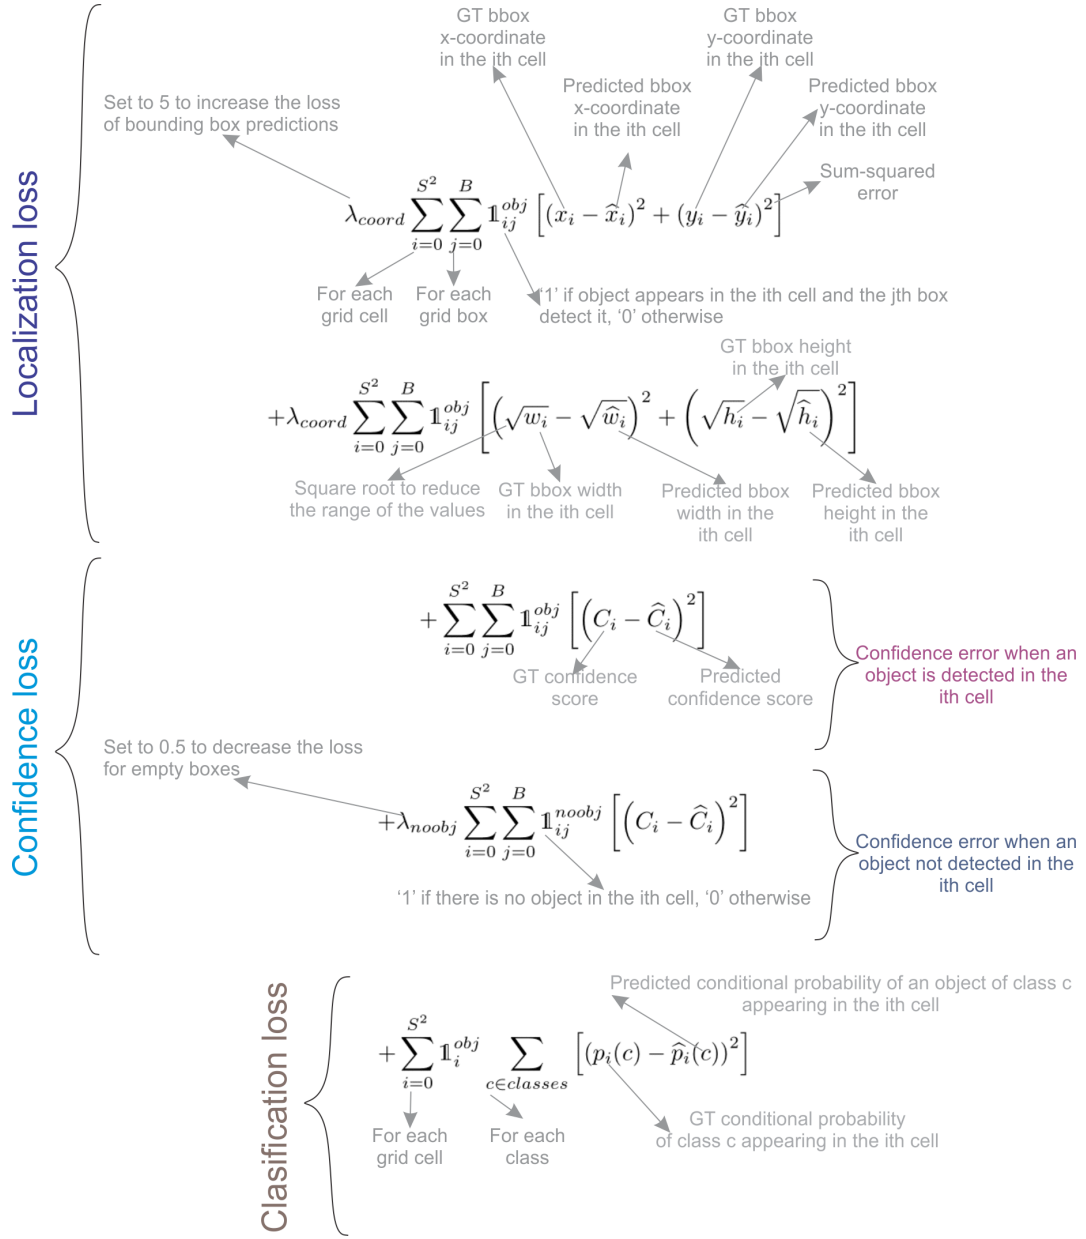 GT bbox
x-coordinate
in the ith cell
GT bbox
y-coordinate
in the ith cell
Predicted bbox
x-coordinate
in the ith cell
Predicted bbox
y-coordinate
in the ith cell
Set to 5 to increase the loss
of bounding box predictions
Sum-squared
error
Localization loss
λ_{coord} \sum_{i=0}^{S^2} \sum_{j=0}^{B} 𝟙_{ij}^{obj} [(x_i − \hat{x}_i)^2 + (y_i − \hat{y}_i)^2]
For each
grid cell
For each
grid box
‘1’ if object appears in the ith cell and the jth box
detect it, ‘0’ otherwise
GT bbox height
in the ith cell
+λ_{coord} \sum_{i=0}^{S^2} \sum_{j=0}^{B} 𝟙_{ij}^{obj} [(\sqrt{w_i} − \sqrt{\hat{w}_i})^2 + (\sqrt{h_i} − \sqrt{\hat{h}_i})^2]
Square root to reduce
the range of the values
GT bbox width
in the ith cell
Predicted bbox
width in the
ith cell
Predicted bbox
height in the
ith cell
Confidence loss
+ \sum_{i=0}^{S^2} \sum_{j=0}^{B} 𝟙_{ij}^{obj} [(C_i − \hat{C}_i)^2]
GT confidence
score
Predicted
confidence score
Confidence error when an
object is detected in the
ith cell
Set to 0.5 to decrease the loss
for empty boxes
+λ_{noobj} \sum_{i=0}^{S^2} \sum_{j=0}^{B} 𝟙_{ij}^{noobj} [(C_i − \hat{C}_i)^2]
Confidence error when an
object not detected in the
ith cell
‘1’ if there is no object in the ith cell, ‘0’ otherwise
Clasification loss
Predicted conditional probability of an object of class c
appearing in the ith cell
+ \sum_{i=0}^{S^2} 𝟙_{i}^{obj} \sum_{c∈classes} [(p_i(c) − \hat{p}_i(c))^2]
For each
grid cell
For each
class
GT conditional probability
of class c appearing in the ith cell